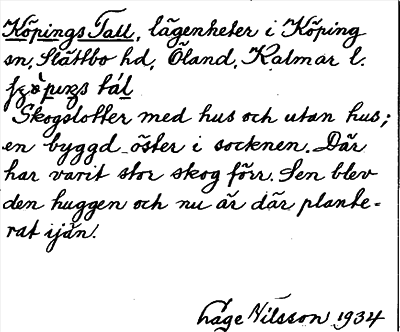 Köpings Tall, lägenheter i Köping
sn, Slättbo hd, Öland, Kalmar l.
tál
Skogslotter med hus och utan hus;
en byggd öster i socknen. Där
har varit stor skog förr. Sen blev
den huggen och nu är där plante-
rat ijän.
Låge Nilsson 1934